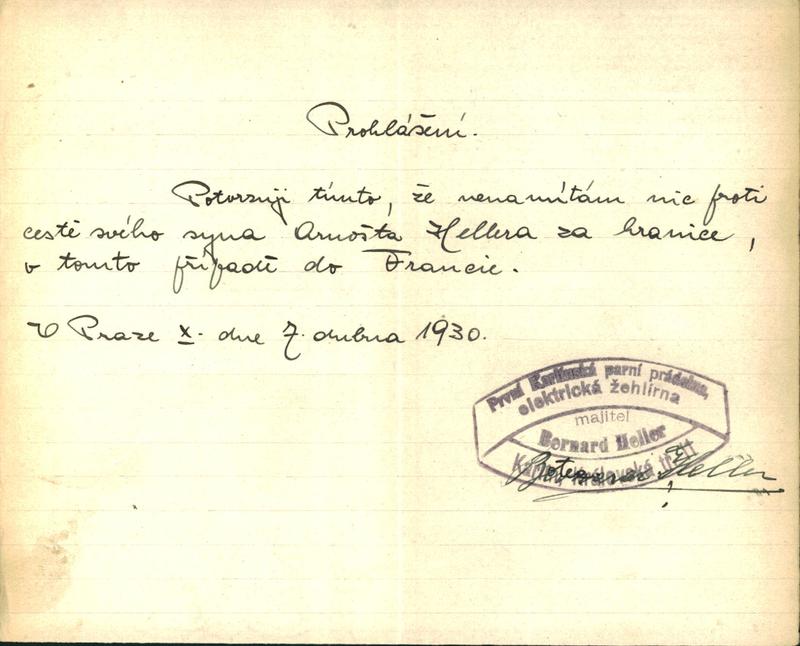 Prohlášení.
Potvrzuji tímto, že nenamítám nic proti
cestě svého syna Arnošta Hellera za hranice,
v tomto případě do Francie.
V Praze X. dne 7. dubna 1930.
První Karlínská parní prádelna,
elektrická žehlírna
majitel
Bernard Heller
Královská
Heller